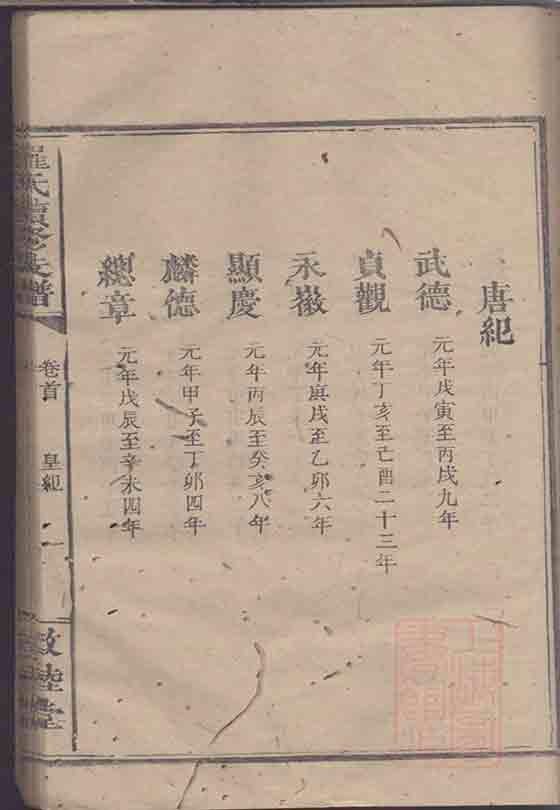 唐紀
武德 元年戊寅至丙戌九年
貞觀 元年丁亥至己酉二十三年
永徽 元年庚戌至乙卯六年
顯慶 元年丙辰至癸亥八年
麟德 元年甲子至丁卯四年
總章 元年戊辰至辛未四年
羅氏續修支譜
卷首 皇紀 一
敦睦堂